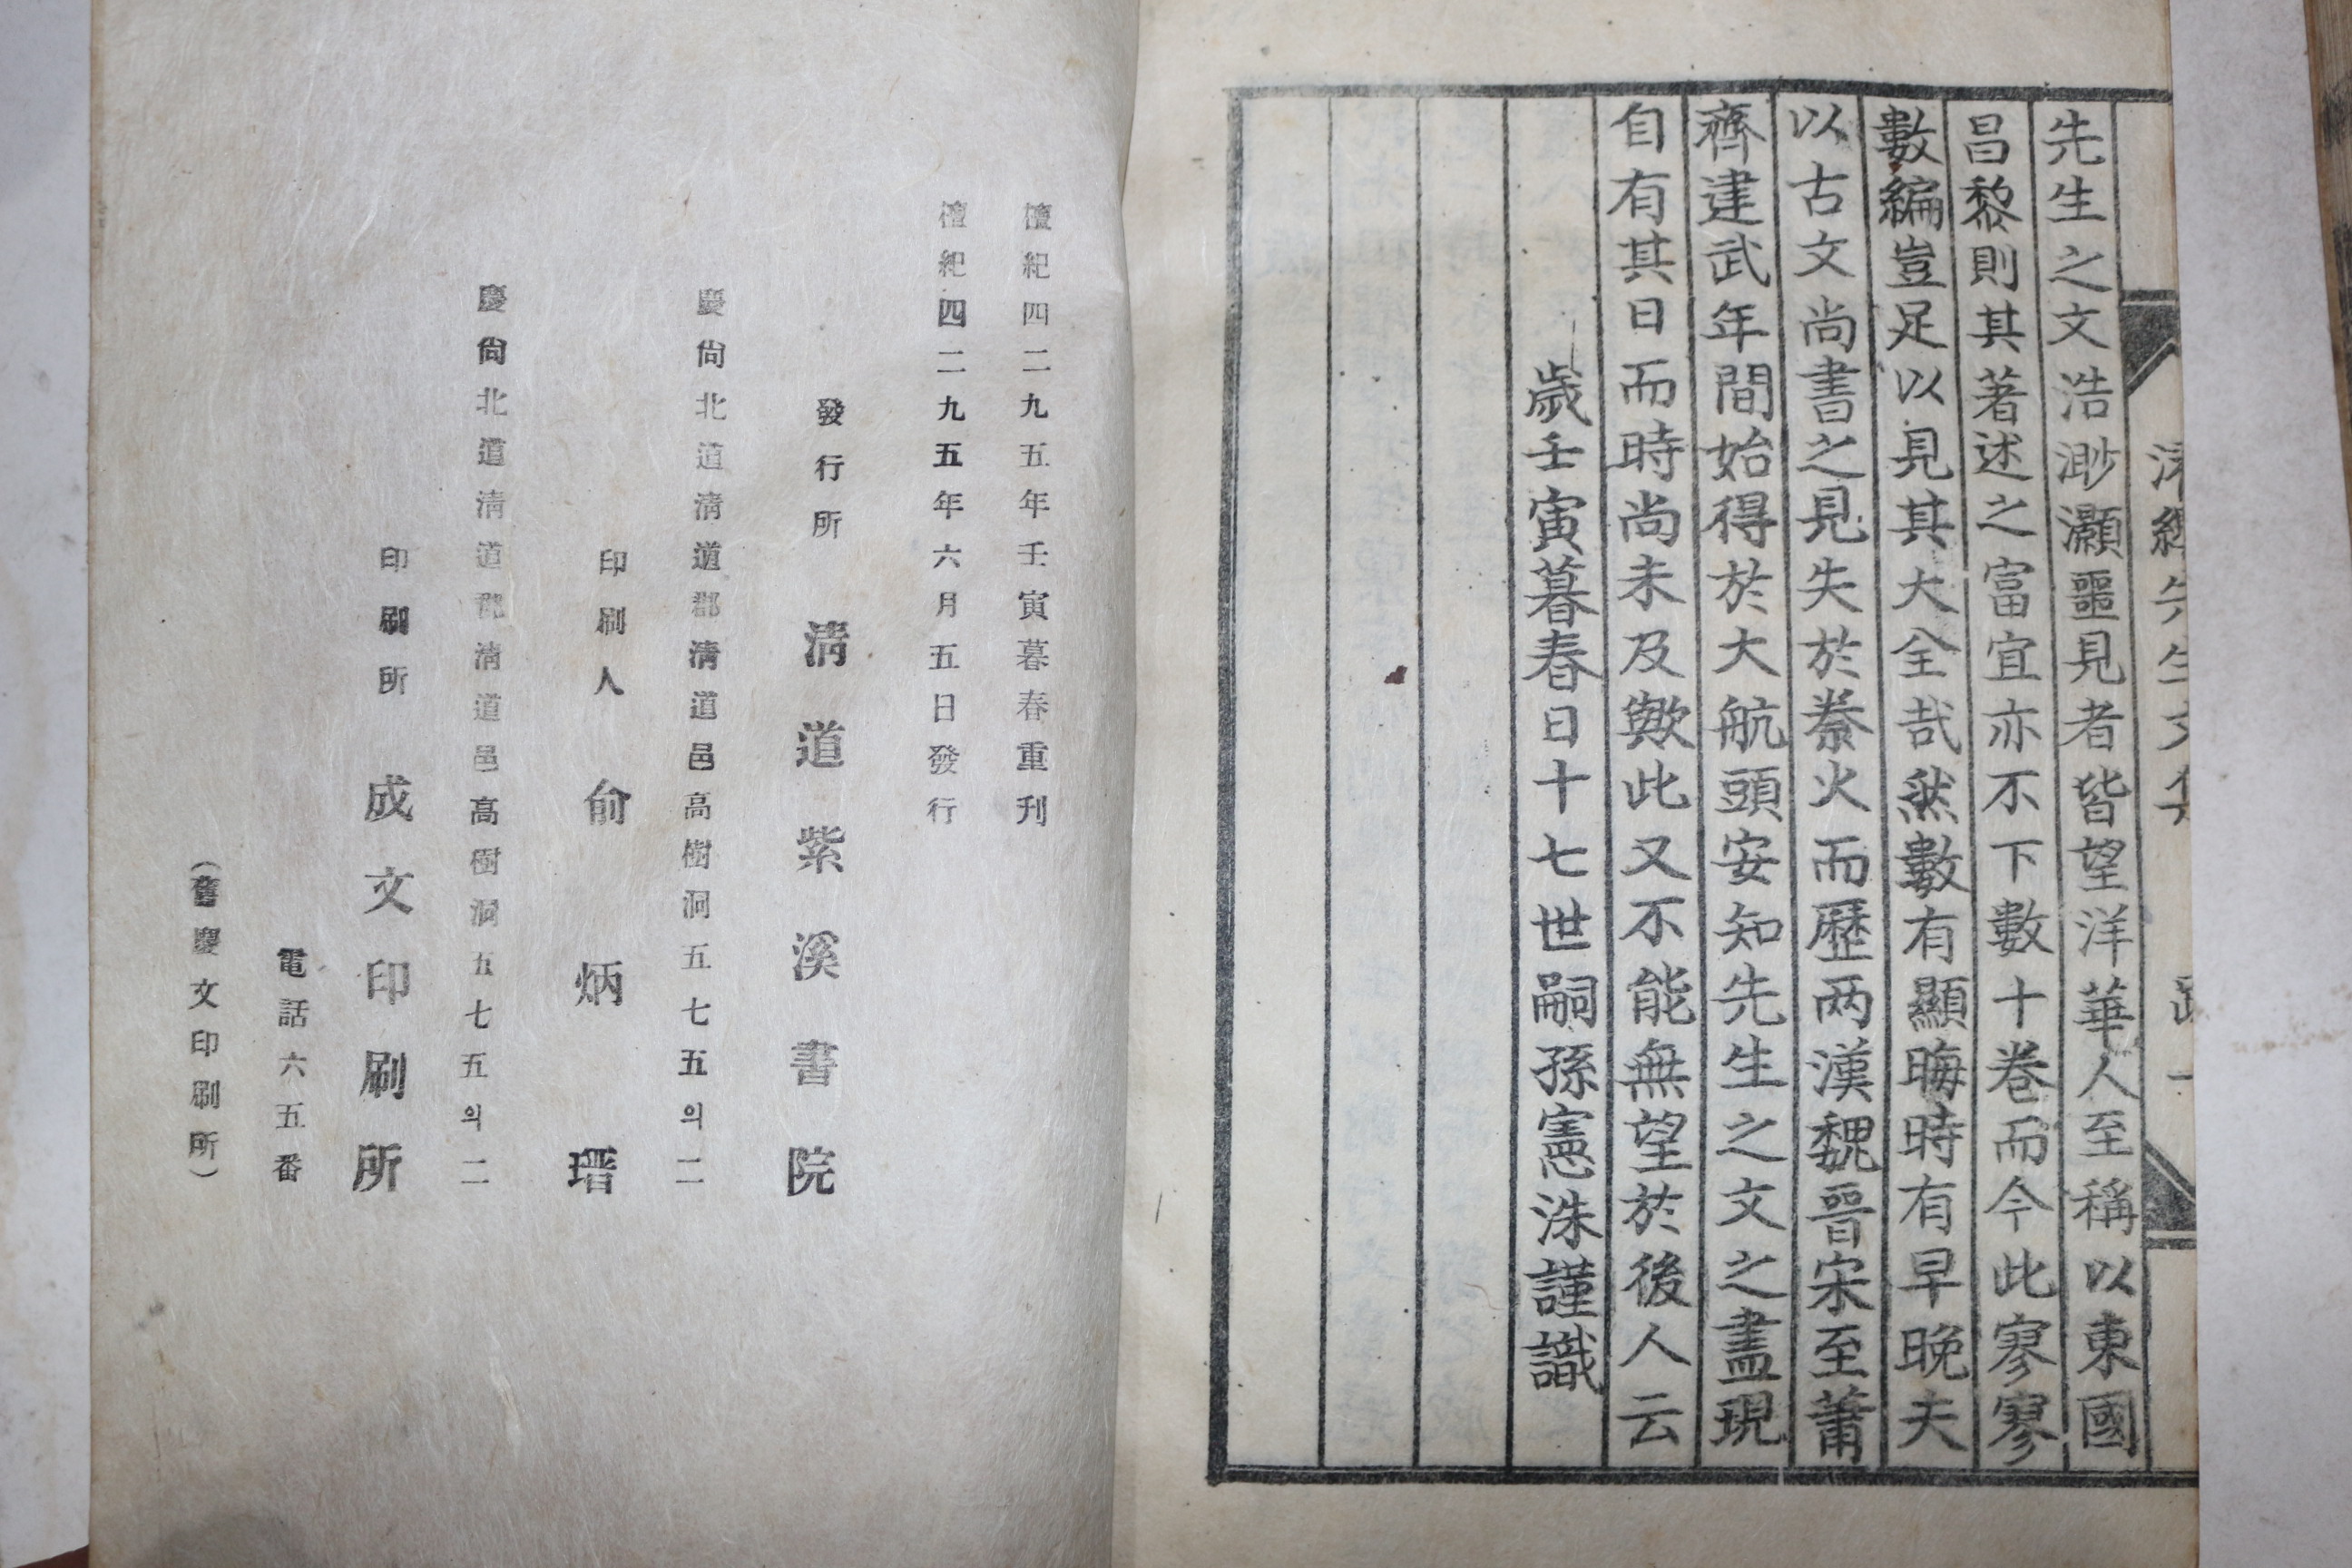 先生之文浩渺灝噩見者皆望洋華人至稱以東國
昌黎則其著述之富宜亦不下數十卷而今此寥寥
數編豈足以見其大全哉然數有顯晦時有早晚夫
以古文尚書之見失於秦火而歷两漢魏晉宋至蕭
齊建武年間始得於大航頭安知先生之文之盡現
自有其日而時尚未及歟此又不能無望於後人云
歲壬寅暮春日十七世嗣孫憲洙謹識
檀紀四二九五年壬寅暮春重刊
檀紀四二九五年六月五日發行
發行所 淸道紫溪書院
慶尙北道淸道郡淸道邑高樹洞五七五의二
印刷人 俞炳瑨
慶尙北道淸道郡淸道邑高樹洞五七五의二
印刷所 成文印刷所
電話六五番
(舊慶文印刷所)